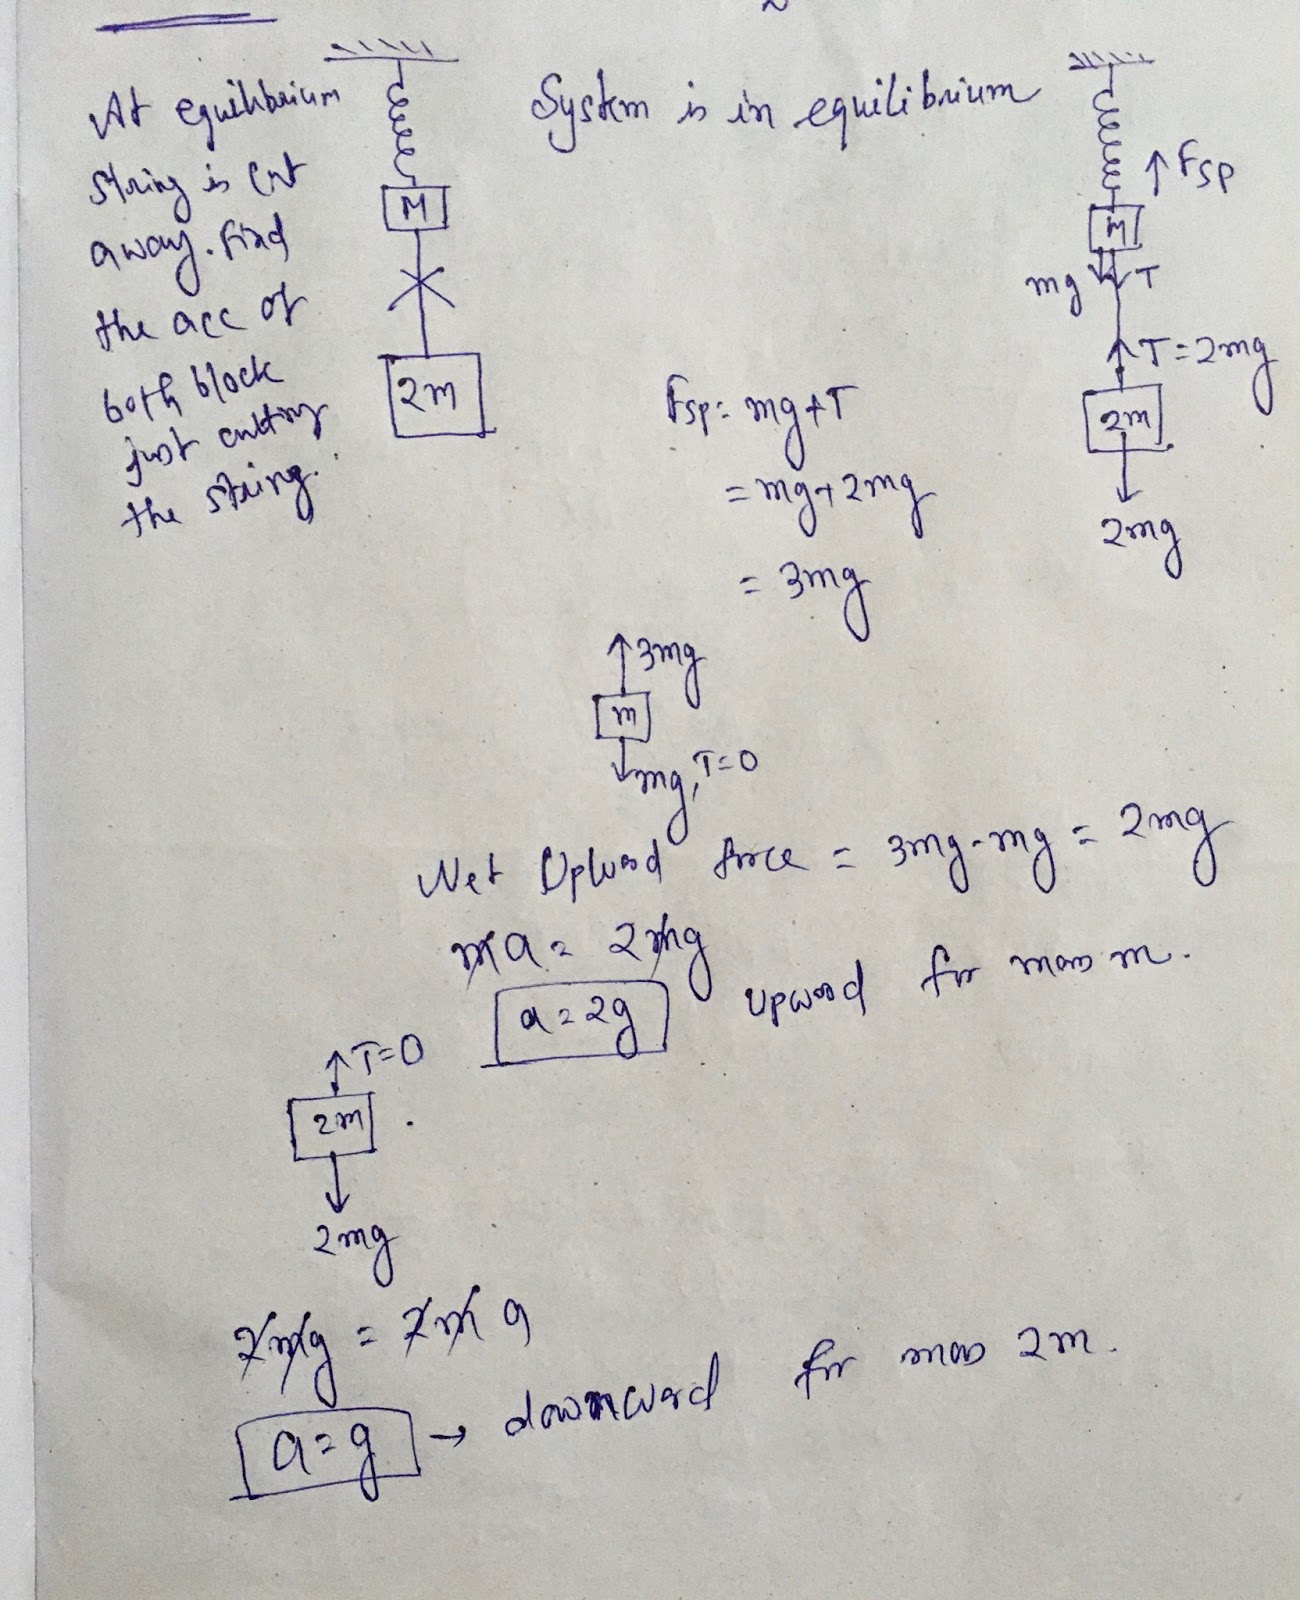 At equilibrium
string is cut
away. find
the acc of
both block
just cutting
the string.
M
2m
System is in equilibrium
↑ Fsp
M
mg T
T=2mg
2m
2mg
Fsp = mg+T
= mg+2mg
= 3mg
3mg
m
mg, T=0
Net Upward force = 3mg-mg = 2mg
ma = 2mg
a=2g upward for mass m.
T=0
2m
2mg
2mg = 2m a
a=g → downward for mass 2m.